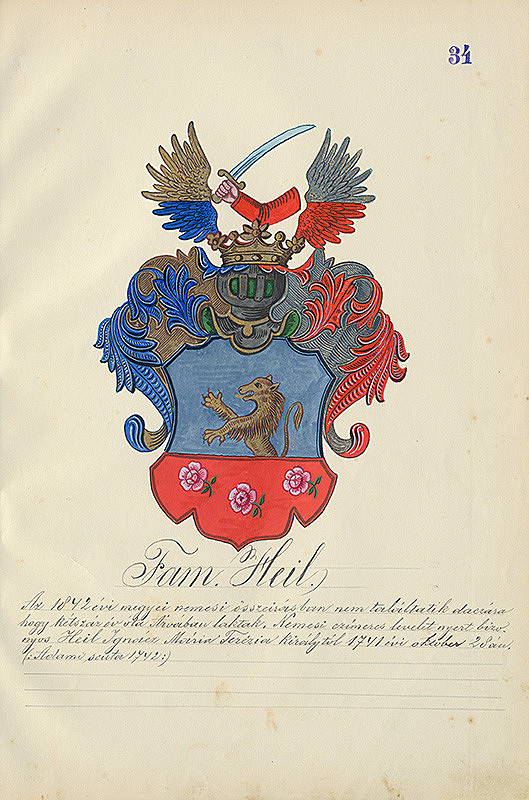 34
Fam. Heil.
Az 1842 évi megyei nemesi összeirásban nem találtatik daczára
hogy kétszáz év óta Árvában laktak. Nemesi czímeres levelet nyert bizo¬
nyos Heil Ignácz Mária Terézia királytól 1741 évi október 2 5án.
(: Adami scuta 1742 :)